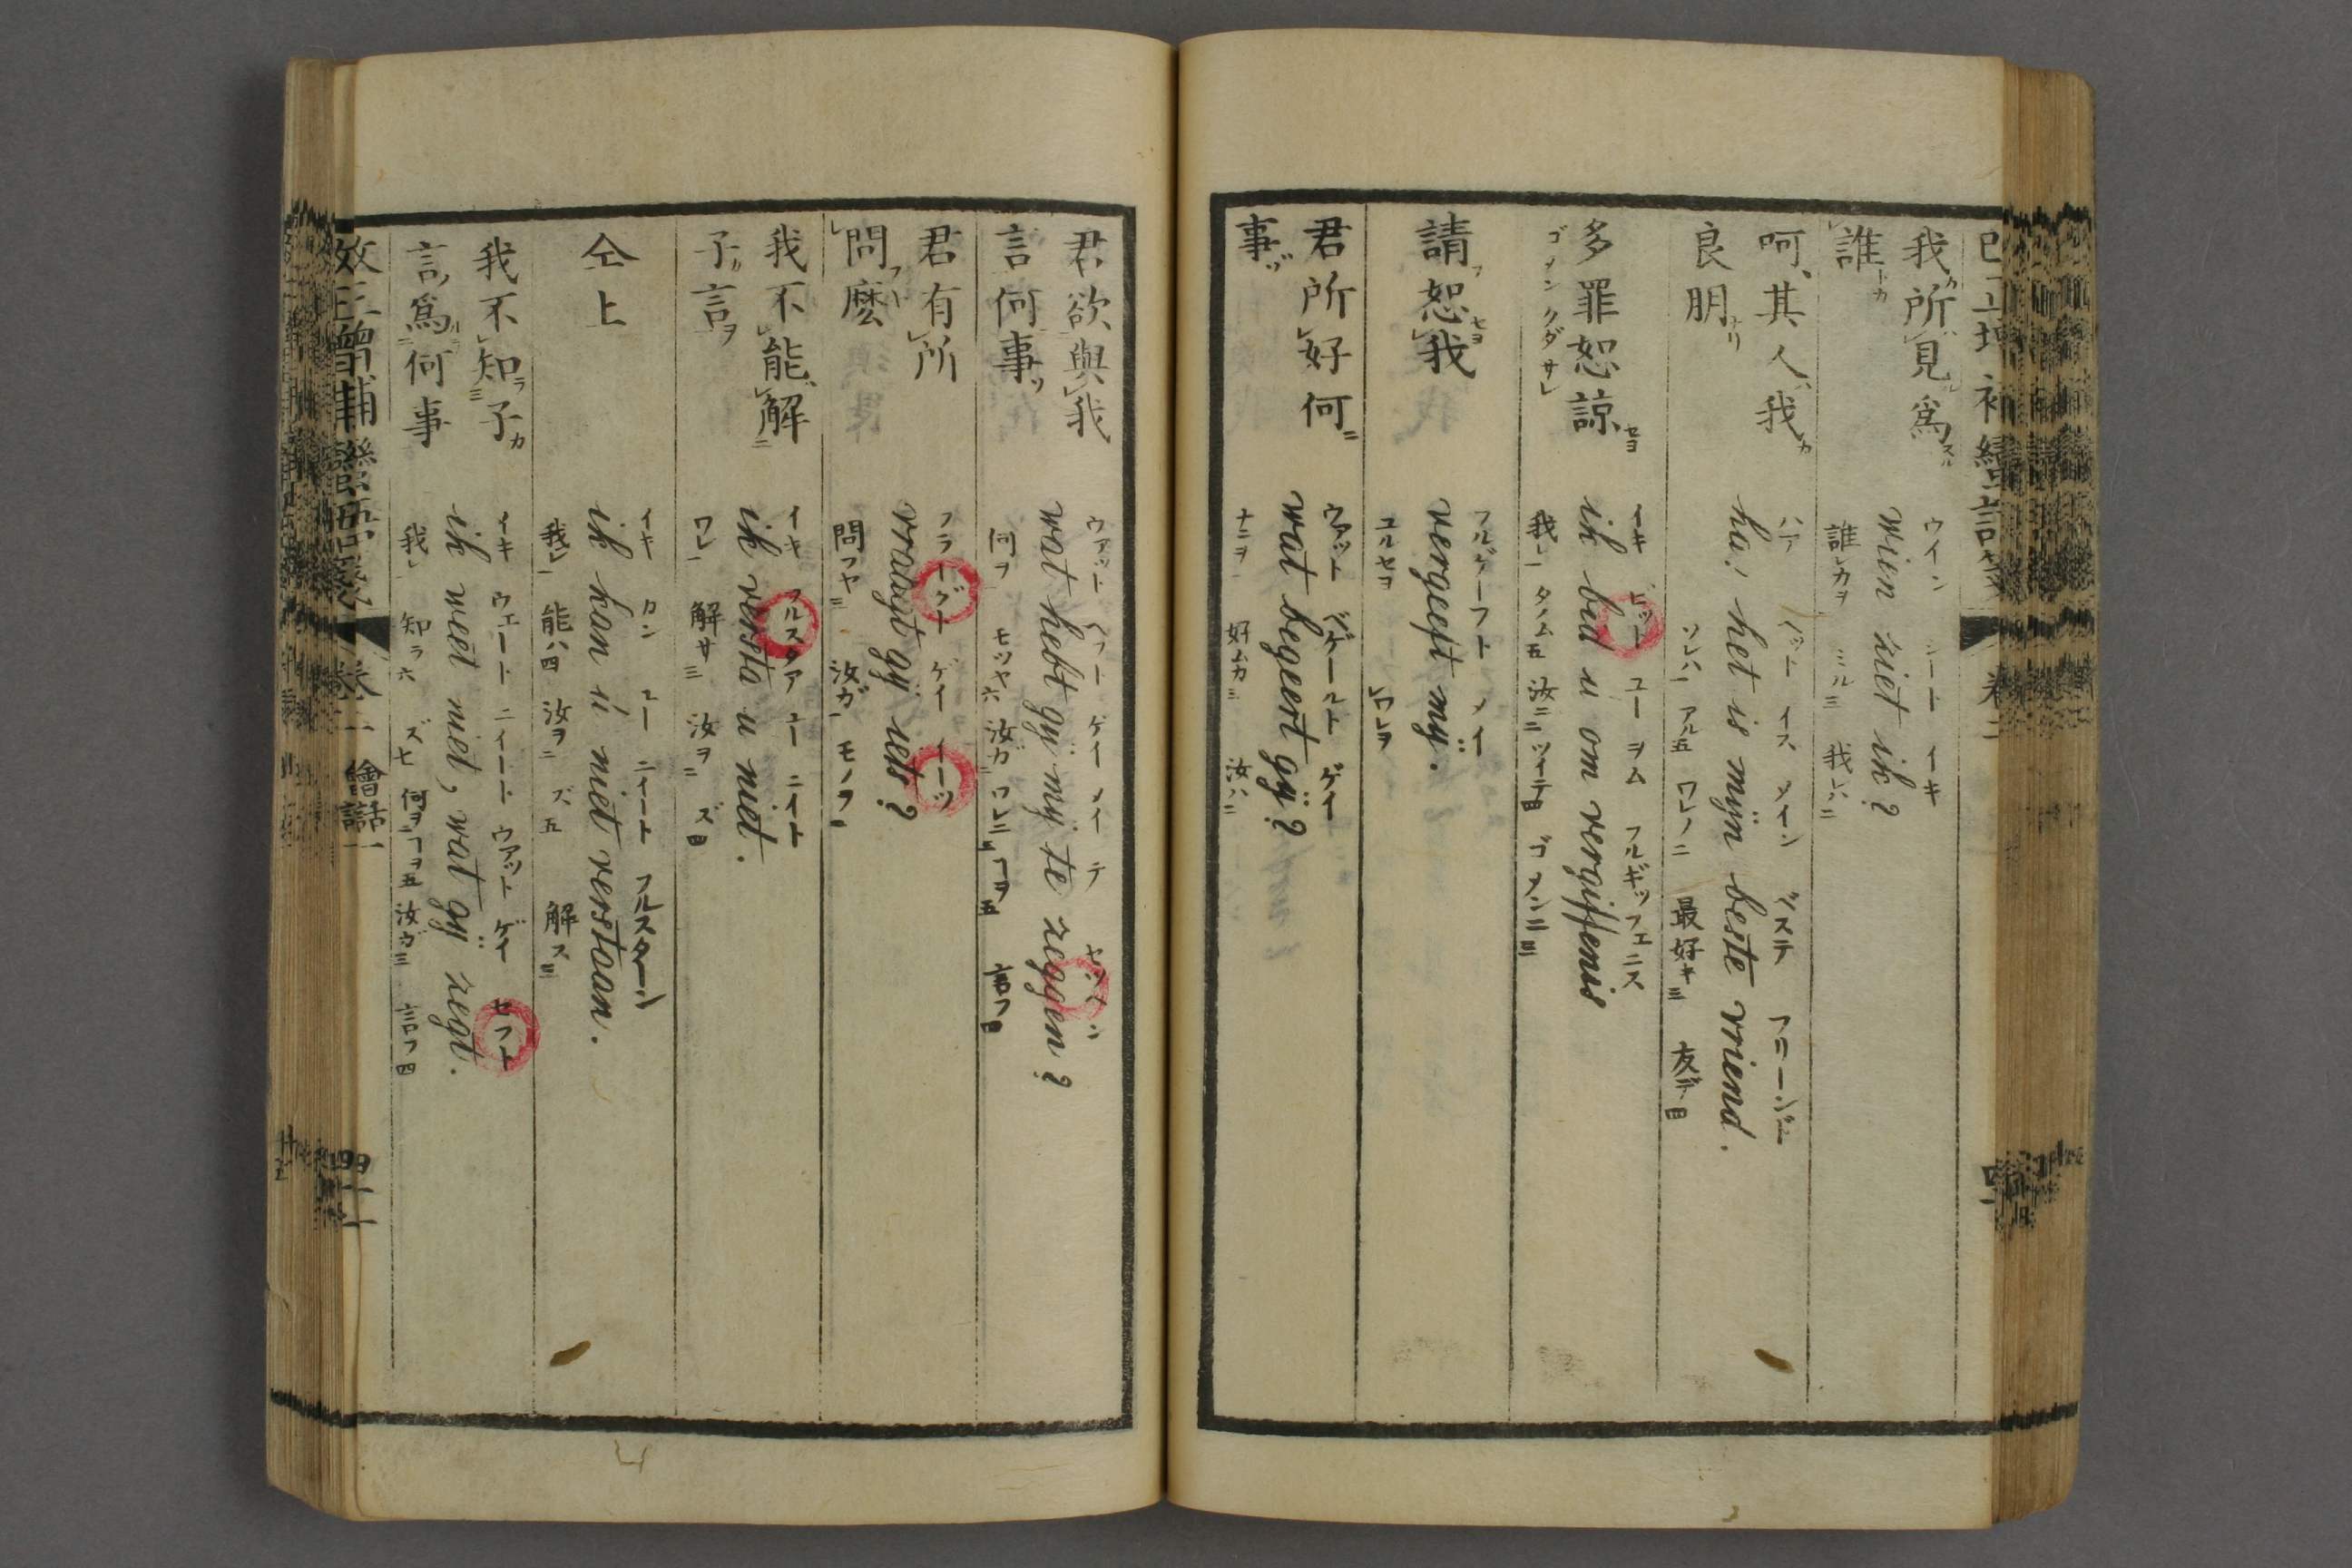 我所見爲
誰
ウイン シート イキ
wien ziet ik?
誰レカヲ一 ミル三 我レハ二
呵、其人我
良朋
ハア ヘット イス メイン ベステ フリーンド
ha! het is mijn beste vriend.
ソレハ一 アル五 ワレノ二 最好キ三 友デ四
多罪恕諒
ゴメンクダサレ
イキ ビット ユー ヲム フルギッフェニス
ik bid u om vergiffenis
我レ一 タノム五 汝ニ二 ツイテ四 ゴメンニ三
請恕我
フルゲーフト メイ
vergeeft mij.
ユルセヨ ワレヲ
君所好何
事
ウァット ベゲールト ゲイ
wat begeert gij?
ナニヲ一 好ムカ三 汝ハ二
君欲與我
言何事
ウァット ヘフト ゲイ メイ テ
wat hebt gij mij te zeggen?
何ヲ一 モツヤ六 汝ガ二 ワレニ三 ヿヲ五 言フ四
君有所
問麼
フラーグト ゲイ イーツ
vraagt gij iets?
問フヤ三 汝ガ一 モノヲ二
我不能解
子言
イキ フルスタア ユー ニイト
ik versta u niet.
ワレ一 解サ三 汝ヲ二 ズ四
仝上
イキ カン ユー ニイート フルスターン
ik kan u niet verstaan.
我レ一 能ハ四 汝ヲ二 ズ五 解ス三
我不知子
言爲何事
イキ ウェート ニイート ウアット ゲイ セフト
ik weet niet, wat gij zegt.
我レ一 知ラ六 ズ七 何ヲ二 ヿヲ五 汝ガ三 言フ四
改正增補蠻語箋 卷二 會話 四十一